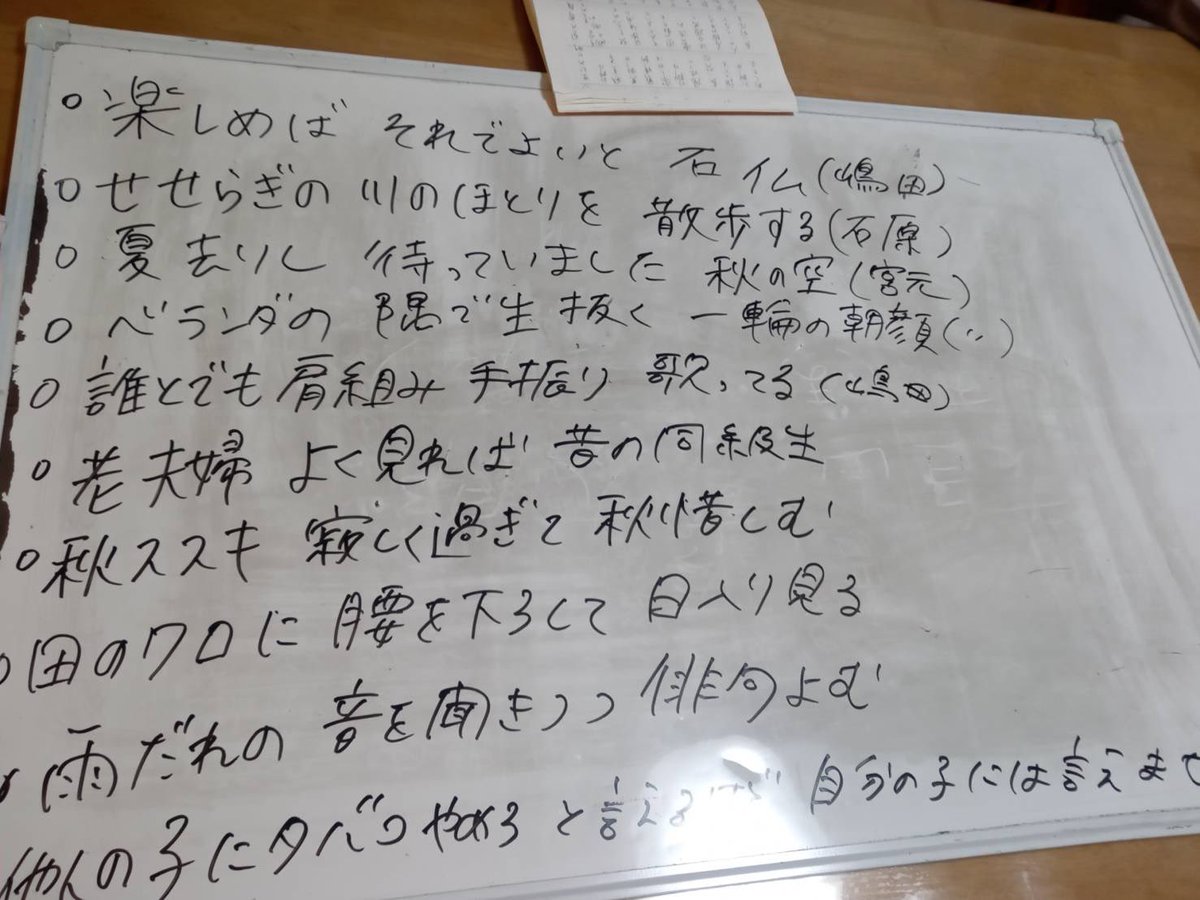 ○ 楽しめば それでよいと 石仏(嶋田)
○ せせらぎの 川のほとりを 散歩する(石原)
○ 夏去りし 待っていました 秋の空(宮元)
○ ベランダの 隅で生抜く 一輪の朝顔(〃)
○ 誰とでも 肩組み 手振り 歌ってる(嶋田)
○ 老夫婦 よく見れば 昔の同級生
○ 秋ススキ 寂しく過ぎて 秋惜しむ
○ 田のクロに 腰を下ろして 日入り見る
雨だれの 音を聞きつつ 俳句よむ
他人の子にタバコやめろ と言えるが 自分の子には言えませ